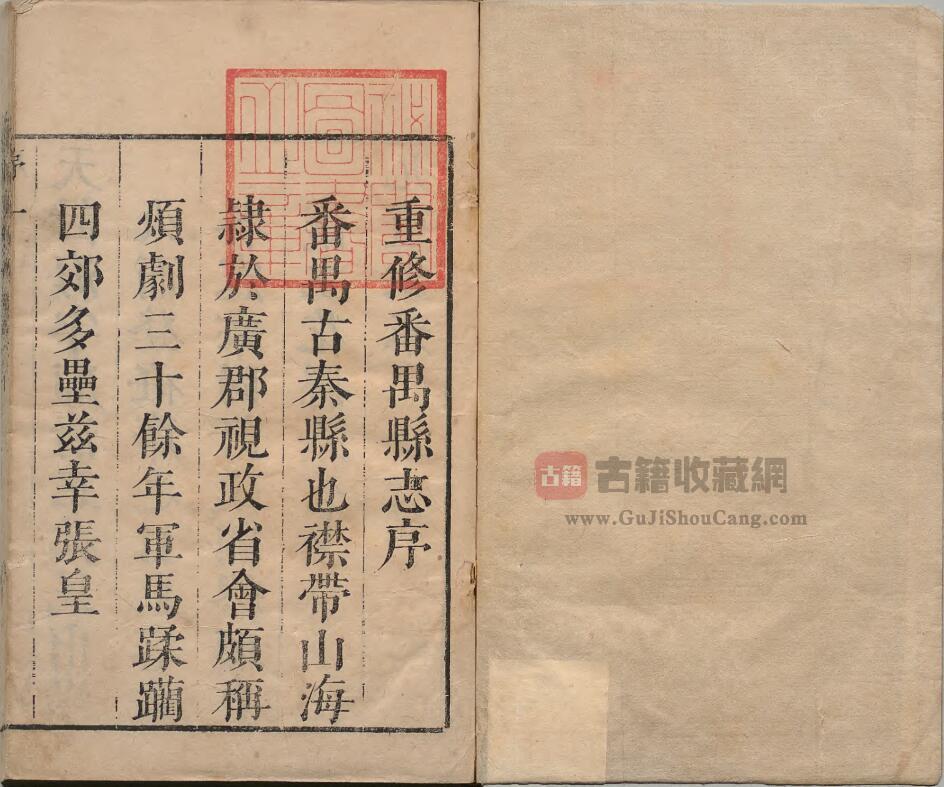 重修番禺縣志序
番禺古秦縣也襟帶山海
隷於廣郡視政省會頗稱
煩劇三十餘年軍馬蹂躪
四郊多壘兹幸張皇
古籍
古籍收藏網
www.GuJiShouCang.com